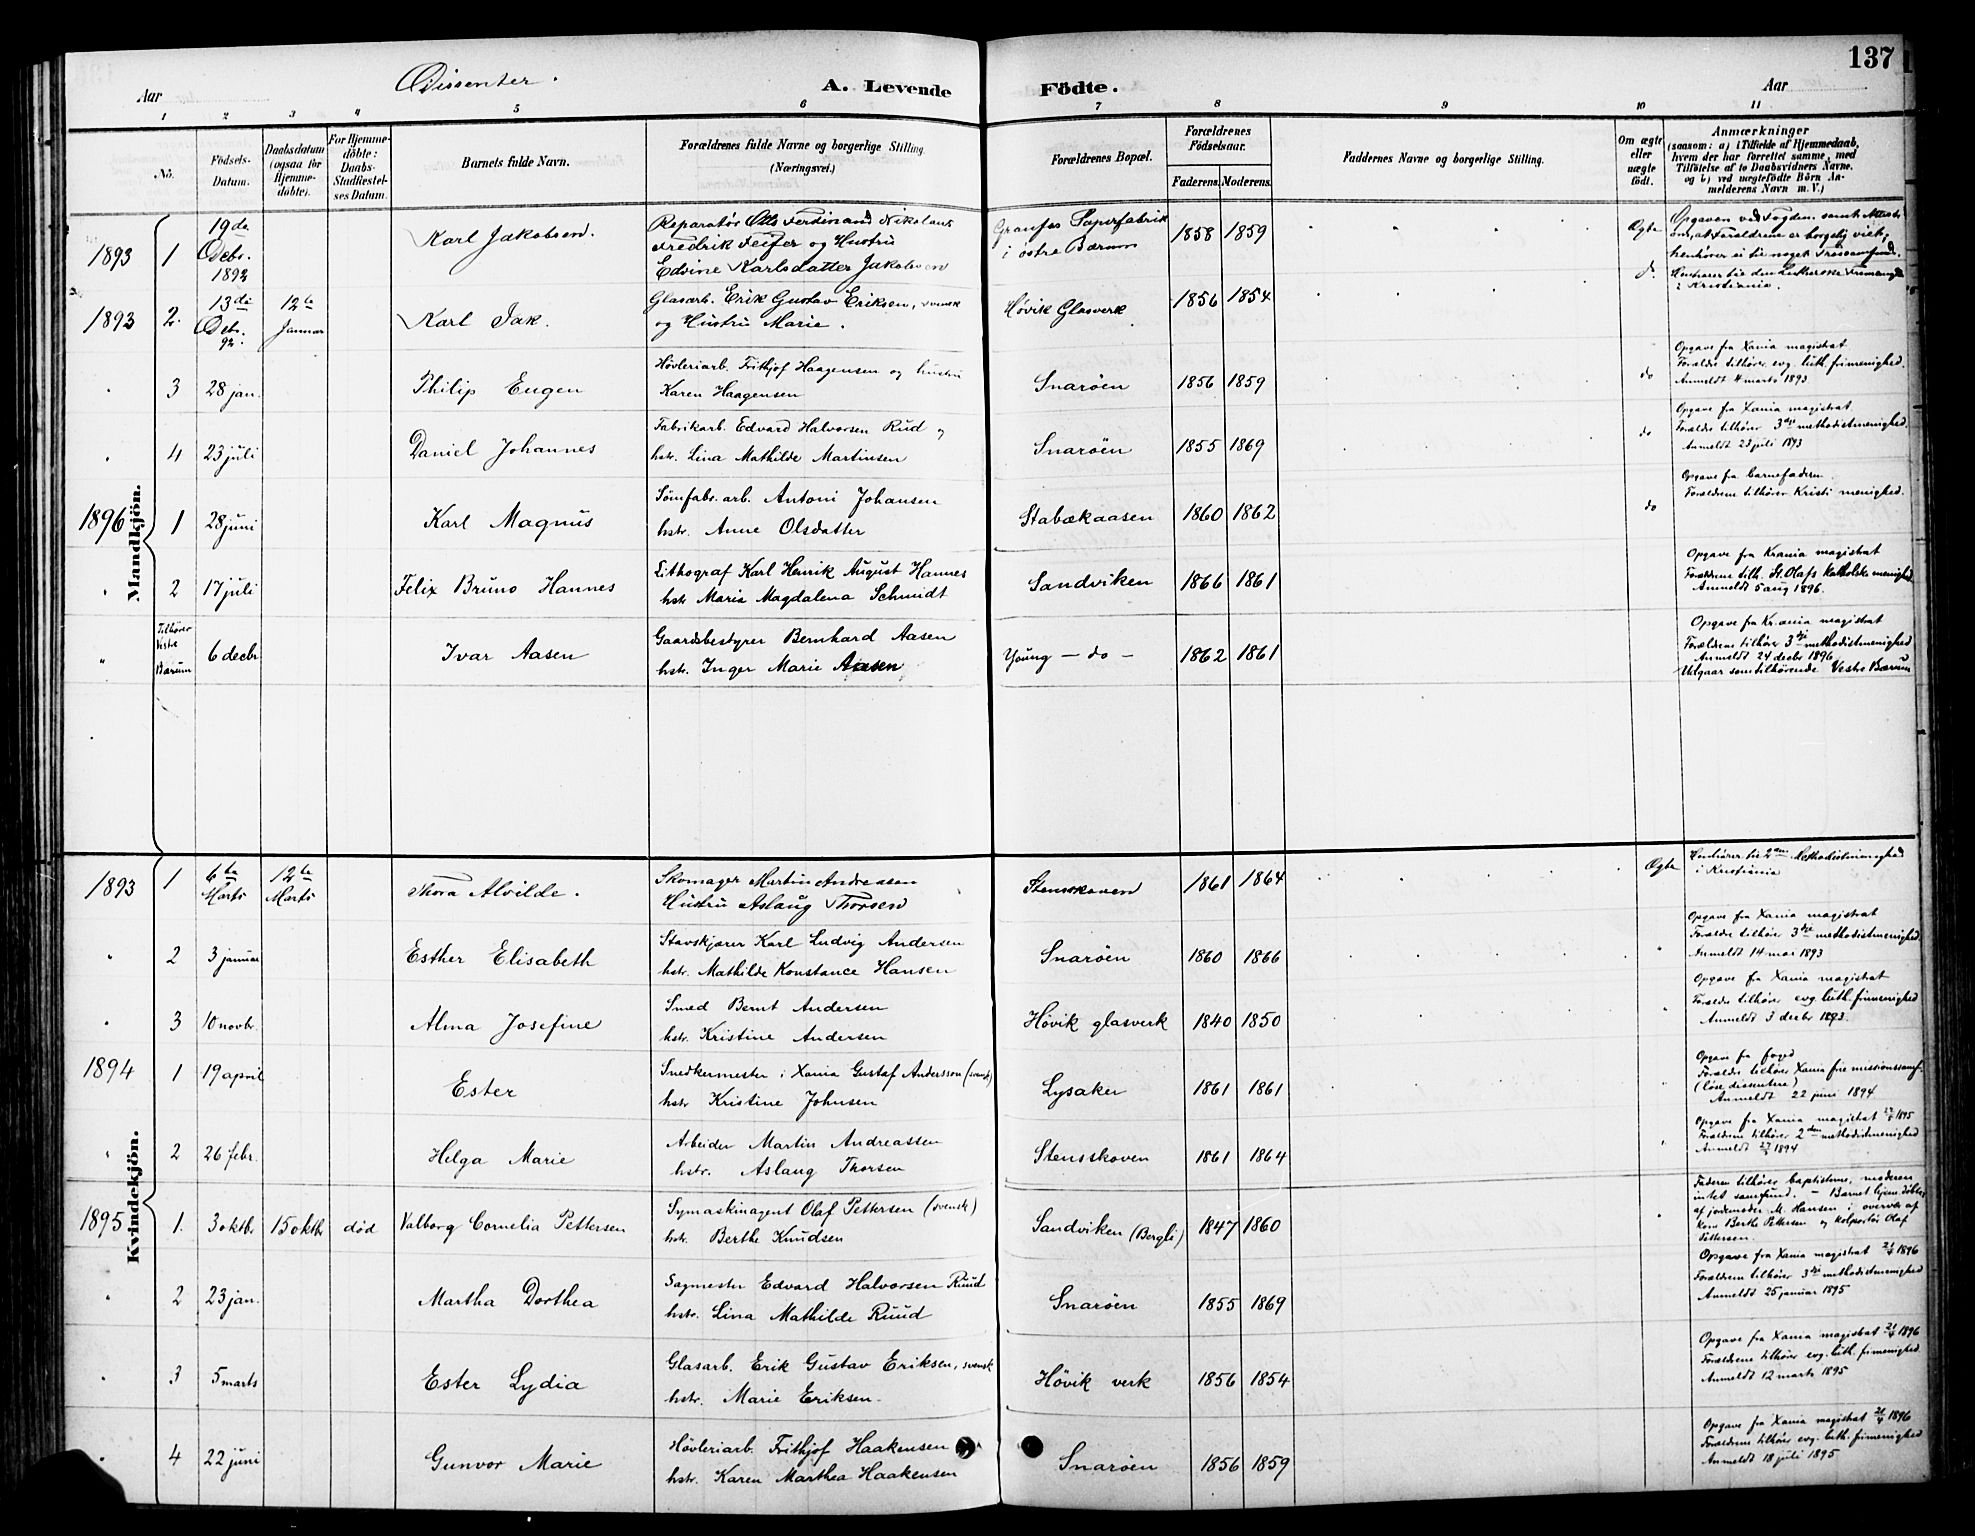 137
Dissenter.
Aar
A. Levende
Födte.
Aar
1 2 3 4 5 6 7 8 9 10 11
No.
Födsels-
Datum.
Daabsdatum
(ogsaa for
Hjemme-
døbte).
For Hjemme-
døbte:
Daabs-
Stadfæstel-
ses Datum.
Barnets fulde Navn.
Forældrenes fulde Navne og borgerlige Stilling.
(Næringsvei.)
Forældrenes Bopæl.
Forældrenes
Födselsaar.
Faderens.
Moderens.
Faddernes Navne og borgerlige Stilling.
Om ægte
eller
uægte
födt.
Anmærkninger
(saasom: a) i Tilfælde af Hjemmedaab,
hvem der har forrettet samme, med
Tilføielse af to Daabsvidners Navne.
og b) ved uægtefödte Börn An-
melderens Navn m. V.)
Mandkjön.
1893 1
19de
Debr.
1892
Karl Jakobsen.
Reparatør Otto Ferdinand Nikolaus
Fredrik Feifer og Hustru
Edvine Karlsdatter Jakobsen
Granfos Papirfabrik
i østre Bærum
1858 1859
Ægte
Opgaven ved Fogden samt Attest
om, at Forældrene er borgelig viet,
henhører ei til noget Trossamfund.
1893 2.
13de
Debr.
92.
12te
Januar
Karl Isak.
Glasarb. Erik Gustav Eriksen, svensk
og Hustru Marie.
Høvik Glasverk
1856 1854
do.
Henhører til den Lutherske Frimenigh.
i Kristiania.
" 3 28 jan.
Philip Eugen
Høvleriarb. Frithjof Haagensen og hustru
Karen Haagensen
Snarøen
1856 1859
do
Opgave fra Xania magistrat.
Forældre tilhører evg. luth. frimenighed.
Anmeldt 4 marts 1893
" 4 23 juli
Daniel Johannes
Fabrikarb. Edvard Halvorsen Rud og
hstr. Lina Mathilde Martinsen
Snarøen
1855 1869
do
Opgave fra Xania magistrat
Forældre tilhører 3die methodistmenighed.
Anmeldt 23 juli 1893
1896 1 28 juni
Karl Magnus
Sømfabr. arb. Antoni Johansen
hstr. Anne Olsdatter
Stabækaasen
1860 1862
do
Opgave fra barnefaderen.
Forældrene tilhører Kristi menighed.
" 2 17 juli
Felix Bruno Hannes
Lithograf Karl Henrik August Hannes
hstr Maria Magdalena Schmidt
Sandviken
1866 1861
Opgave fra Krania magistrat
Forældrene tilh. St. Olafs katholske menighed
Anmeldt 5 aug 1896.
"
Tilhører
Vestre
Bærum
6 decbr
Ivar Aasen
Gaardsbestyrer Bernhard Aasen
hstr. Inger Marie Aasen
Young — do —
1862 1861
Opgave fra Kr.ania magistrat
Forældrene tilhører 3die methodistmenighed
Anmeldt 24 decbr 1896
Udgaar som tilhørende Vestre Bærum
Kvindekjön.
1893 1
6te
Marts
12te
Marts
Thora Alvilde.
Skomager Martin Andreasen
Hustru Aslaug Thorsen
Stensskoven
1861 1864
Ægte
Henhører til 2den Methodistmenighed
i Kristiania
" 2 3 januar
Esther Elisabeth
Stavskjærer Karl Ludvig Andersen
hstr. Mathilde Konstance Hansen
Snarøen
1860 1866
"
Opgave fra Xania magistrat
Forældre tilhører 3die methodistmenighed.
Anmeldt 14 mar 1893
" 3 10 novbr.
Alma Josefine
Smed Bernt Andersen
hstr. Kristine Andersen
Høvik glasverk
1840 1850
"
Opgave fra Xania magistrat
Forældre tilhører evg. luth. frimenighed
Anmeldt 3 decbr 1893.
1894 1 19 april
Ester
Snedkermester i Xania Gustaf Andersson (svensk)
hstr Kristine Johnsen
Lysaker
1861 1861
"
Opgave fra foged
Forældre tilhører Xania frie missionssamf.
(løse dissentere)
Anmeldt 22 juni 1894
" 2 26 febr.
Helga Marie
Arbeider Martin Andreassen
hstr. Aslaug Thorsen
Stensskoven
1861 1864
"
Opgave fra Xania magistrat 1895
Forældrene tilhører 2den methodistmenighed
Anmeldt 1894
1895 1. 3 oktbr 15 oktbr død
Valborg Cornelia Pettersen
Symaskinagent Olaf Pettersen (svensk)
hstr. Berthe Knudsen
Sandviken (Bergli)
1847 1860
"
Faderen tilhører baptisterne, moderen
intet samfund. — Barnet hjem. døbt
af jordmoder M. Hansen i overvær af
kone Berthe Pettersen og kolportør Olaf
Pettersen.
" 2 23 jan.
Martha Dorthea
Sagmester Edvard Halvorsen Ruud
hstr. Lina Mathilde Ruud
Snarøen
1855 1869
Opgave fra Xania magistrat 21/4 1896
Forældrene tilhører 3die methodistmenighed
Anmeldt 25 januar 1895
" 3 5 marts
Ester Lydia
Glasarb. Erik Gustav Eriksen, svensk
hstr. Marie Eriksen.
Høvik verk
1856 1854
Opgave fra Xania magistrat 21/4 1896
Forældrene tilhører evg. luth. frimenighed.
Anmeldt 12 marts 1895
" 4 22 juni
Gunvor Marie
Høvleriarb. Frithjof Haakensen
hstr. Karen Marthea Haakensen
Snarøen
1856 1859
Opgave fra Xania magistrat 21/4 1896
Forældrene tilhører evg. luth. frimenighed
Anmeldt 18 juli 1895